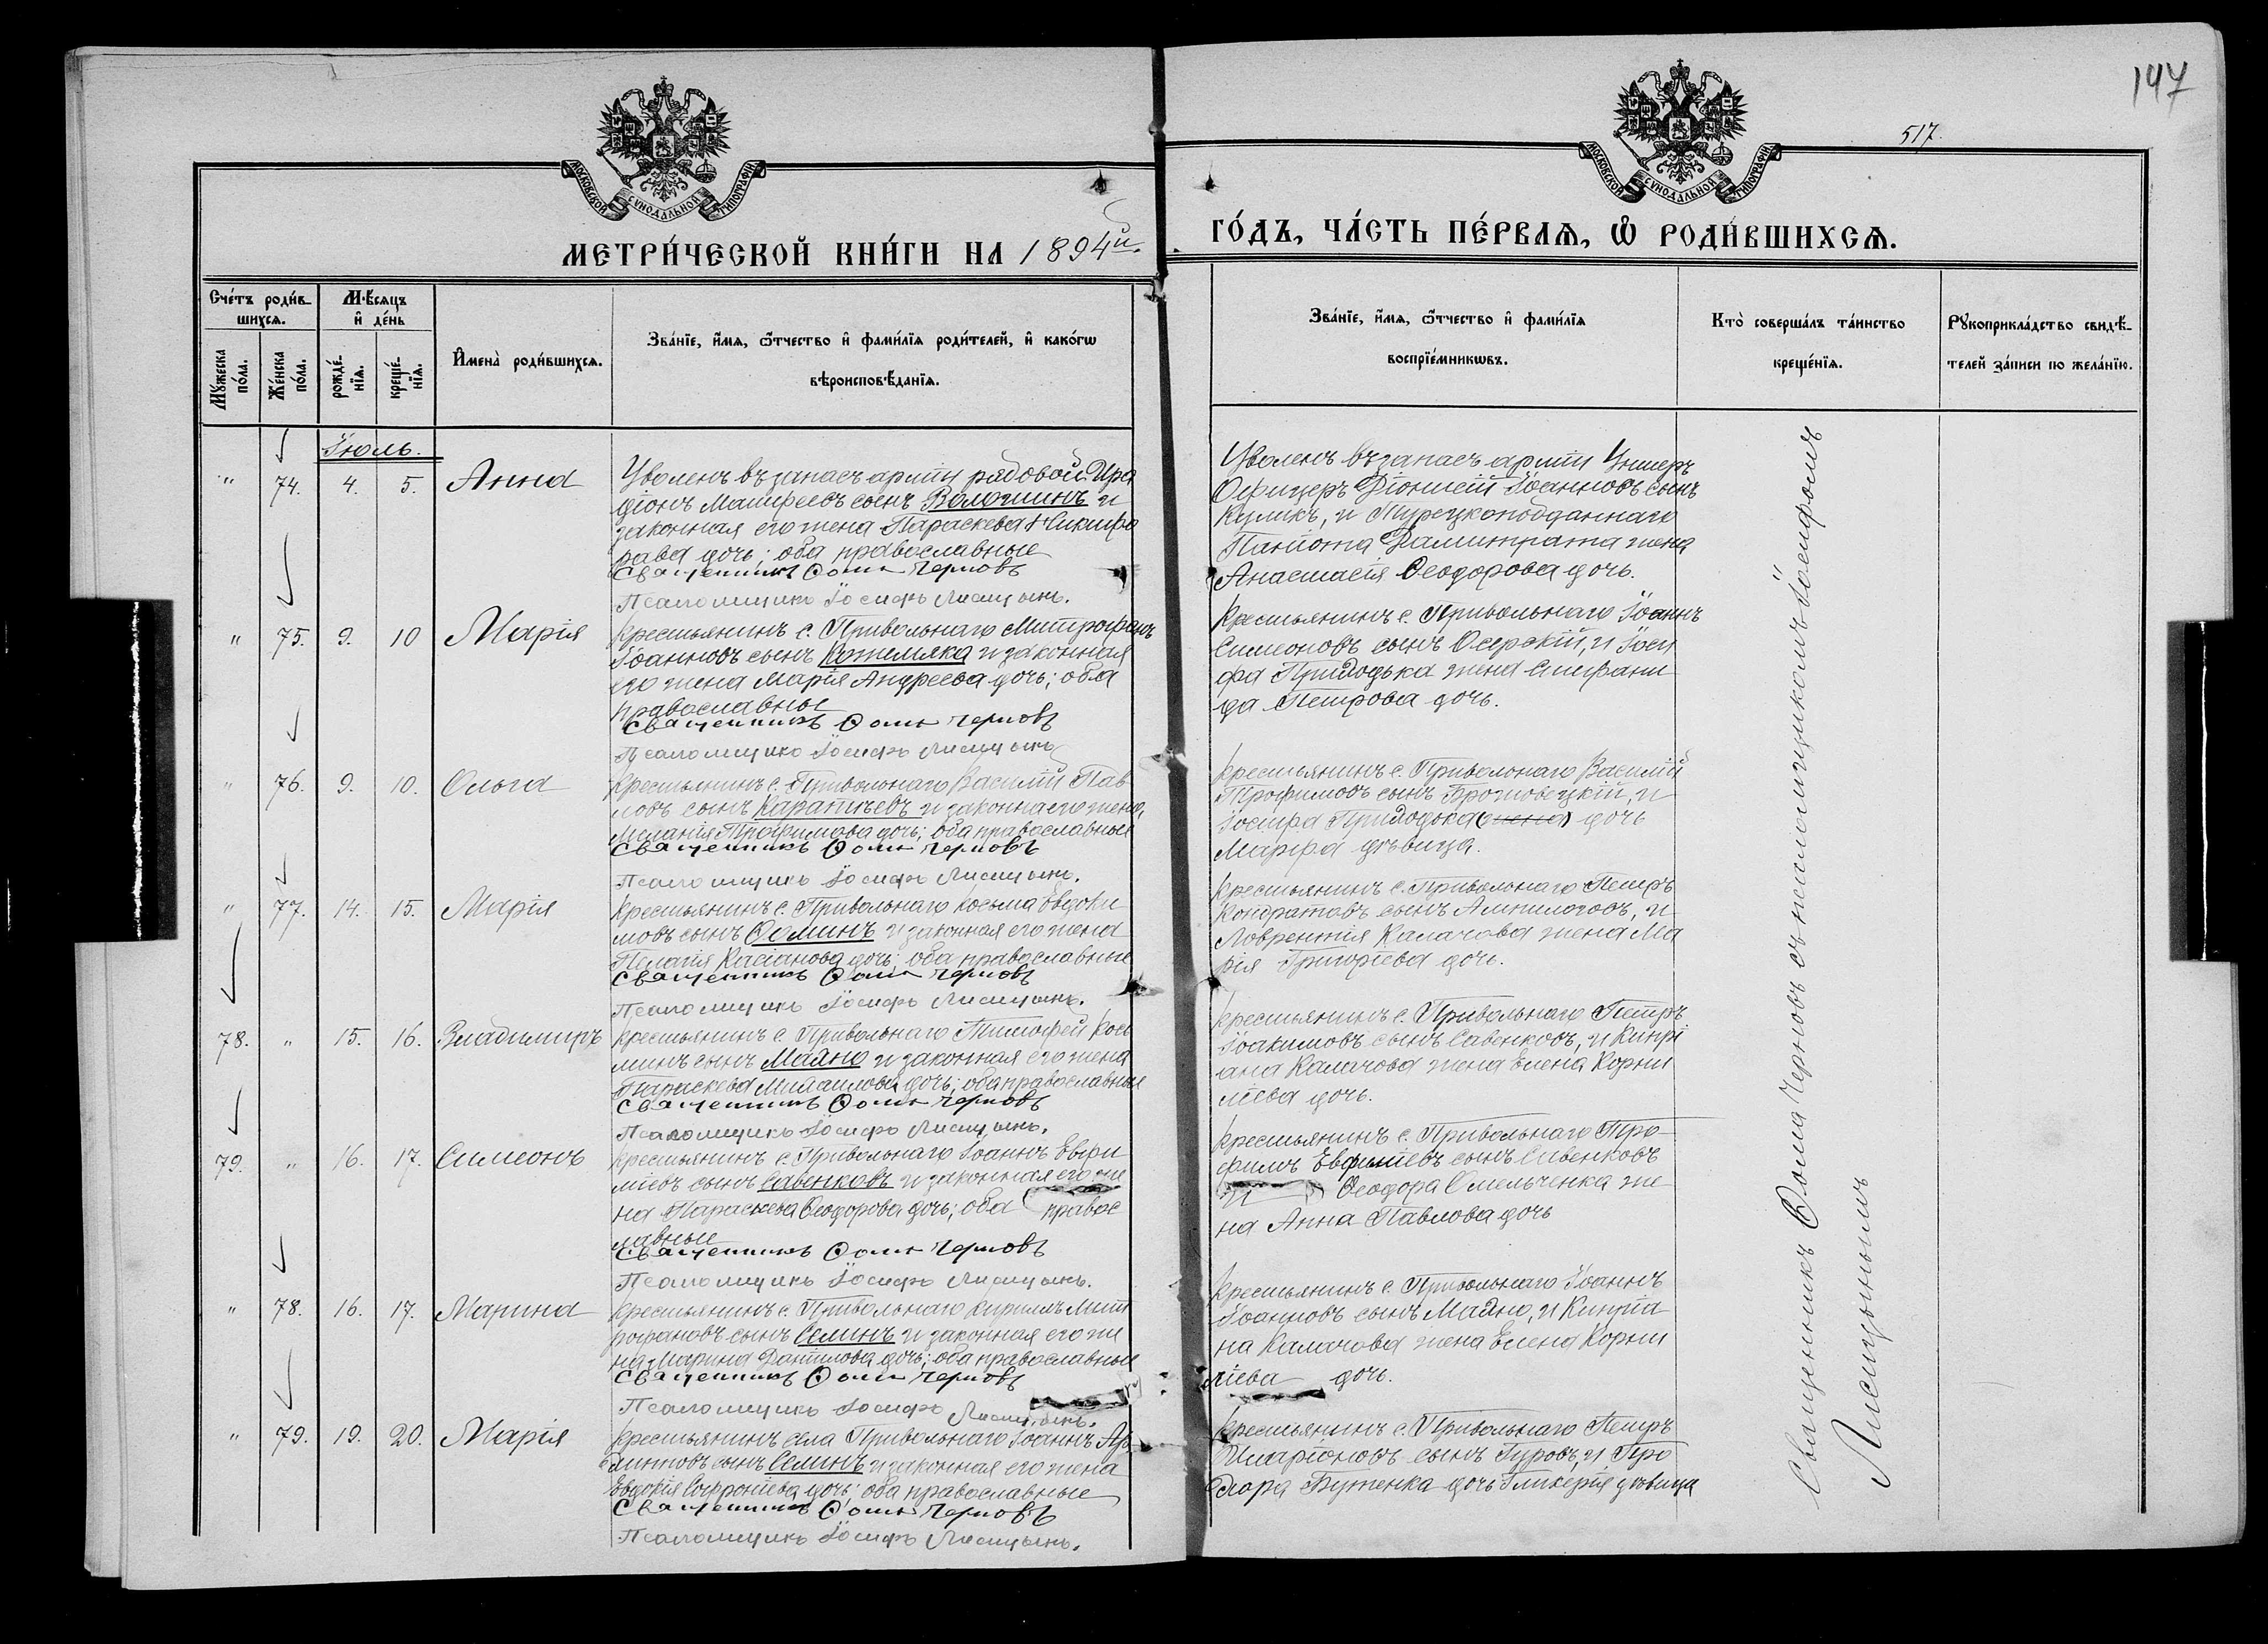 147
517.
МОСКОВСКОЙ СѴНОДАЛЬНОЙ ТИПОГРАФІИ
МОСКОВСКОЙ СѴНОДАЛЬНОЙ ТИПОГРАФІИ
МЕТРИ́ЧЕСКОЙ КНИ́ГИ НА 1894й
ГО́ДЪ, ЧА́СТЬ ПЕ́РВАЯ, Ѡ РОДИ́ВШИХСЯ.
Сче́тъ роди́в-
шихся.
Мѣ́сяцъ
и҆ де́нь
Мꙋ́жеска
по́ла.
Же́нска
по́ла.
рожде́-
нїя.
креще́-
нїя.
И҆мена̀ роди́вшихся.
Зва́нїе, и҆́мя, ѻ҆́тчество и҆ фами́лїя роди́телей, и҆ како́гѡ
вѣроисповѣ́данїя.
Зва́нїе, и҆́мя, ѻ҆́тчество и҆ фами́лїя
воспрїе́мникѡвъ.
Кто̀ соверша́лъ та́инство
креще́нїя.
Рꙋкоприкла́дство свидѣ́-
телей за́писи по жела́нїю.
Іюль.
" 74. 4. 5. Анна
Уволенъ въ запасъ арміи рядовой Иро
діонъ Матфеевъ сынъ Волошинъ и
законная его жена Параскева Никифо
рова дочь; оба православные
Священникъ Ѳома Черновъ
Псаломщикъ Іосифъ Лисицынъ.
Уволенъ въ запасъ арміи Унтеръ
Офицеръ Діонисій Іоанновъ сынъ
Куликъ, и Турецкоподданнаго
жена
Анастасія Ѳеодорова дочь.
" 75. 9. 10 Марія
Крестьянинъ с. Привольнаго Митрофанъ
Іоанновъ сынъ Кожемяка и законная
его жена Марія Андреева дочь; оба
православные
Священникъ Ѳома Черновъ
Псаломщикъ Іосифъ Лисицынъ
Крестьянинъ с. Привольнаго Іоаннъ
Симеоновъ сынъ Осерскій, и Іоси
фа Приходька жена Степани
да Петрова дочь.
" 76. 9. 10. Ольга
Крестьянинъ с. Привольнаго Василій Пав
ловъ сынъ Каратѣевъ и законна его жена,
Меланія Трофимова дочь; оба православные
Священникъ Ѳома Черновъ
Псаломщикъ Іосифъ Лисицынъ.
Крестьянинъ с. Привольнаго Василій
Трофимовъ сынъ Бротовецкій, и
Іосифа Приходька (жена) дочь
Марфа дѣвица.
" 77. 14. 15. Марія
Крестьянинъ с. Привольнаго Косьма Евдоки
мовъ сынъ Ѳоминъ и законная его жена
Пелагія Касіанова дочь; оба православные
Священникъ Ѳома Черновъ
Псаломщикъ Іосифъ Лисицынъ.
Крестьянинъ с. Привольнаго Петръ
Кондратовъ сынъ Ампилоговъ, и
Лаврентія Калачова жена Ма
рія Григоріева дочь.
78. " 15. 16. Владимиръ
Крестьянинъ с. Привольнаго Тимофей Кось
минъ сынъ Маяно и законная его жена
Параскева Михаилова дочь; оба православные
Священникъ Ѳома Черновъ
Псаломщикъ Іосифъ Лисицынъ.
Крестьянинъ с. Привольнаго Петръ
Іоакимовъ сынъ Савенковъ, и Кипрі
ана Калачова жена Елена Корни
ліева дочь.
79. " 16. 17. Симеонъ
Крестьянинъ с. Привольнаго Іоаннъ Евфи
міевъ сынъ Савенковъ и законная его же
на Параскева Ѳеодорова дочь; оба правос
лавные
Священникъ Ѳома Черновъ
Псаломщикъ Іосифъ Лисицынъ.
Крестьянинъ с. Привольнаго Тро-
фимъ Евфиміевъ сынъ Савенковъ
и Ѳеодора Омельченка же
на Анна Павлова дочь
" 78. 16. 17. Марина
Крестьянинъ с. Привольнаго Кириллъ Мит
рофановъ сынъ Селинъ и законная его же
на Марина Даніилова дочь; оба православные
Священникъ Ѳома Черновъ
Псаломщикъ Іосифъ Лисицынъ.
Крестьянинъ с. Привольнаго Іоаннъ
Іоанновъ сынъ Маяно, и Кипріа
на Калачова жена Елена Корни
ліева дочь.
" 79. 19. 20. Марія
Крестьянинъ села Привольнаго Іоаннъ
сынъ Селинъ и законная его жена
Евдокія Софроніева дочь; оба православные
Священникъ Ѳома Черновъ
Псаломщикъ Іосифъ Лисицынъ.
Крестьянинъ с. Привольнаго Петръ
Иларіоновъ сынъ Гуровъ, и
Бутенка дочь Гликерія дѣвица
Священникъ Ѳома Черновъ съ псаломщикомъ Іосифомъ
Лисицынымъ